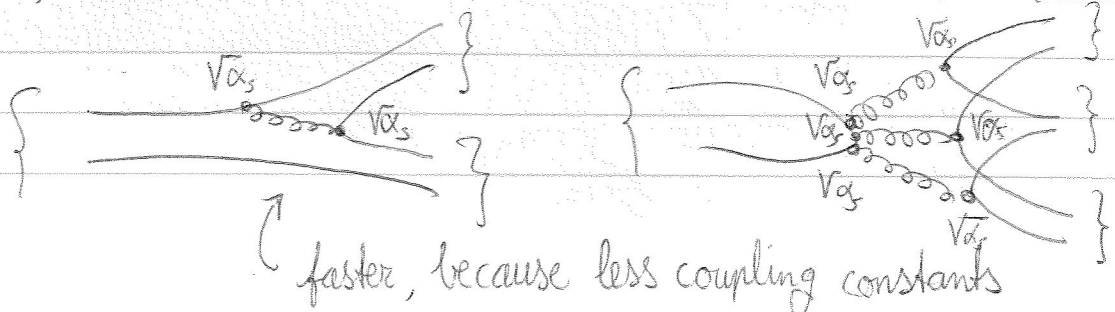 √αs
√αs
√αs
√αs
√αs
√αs
√αs
√αs
faster, because less coupling constants